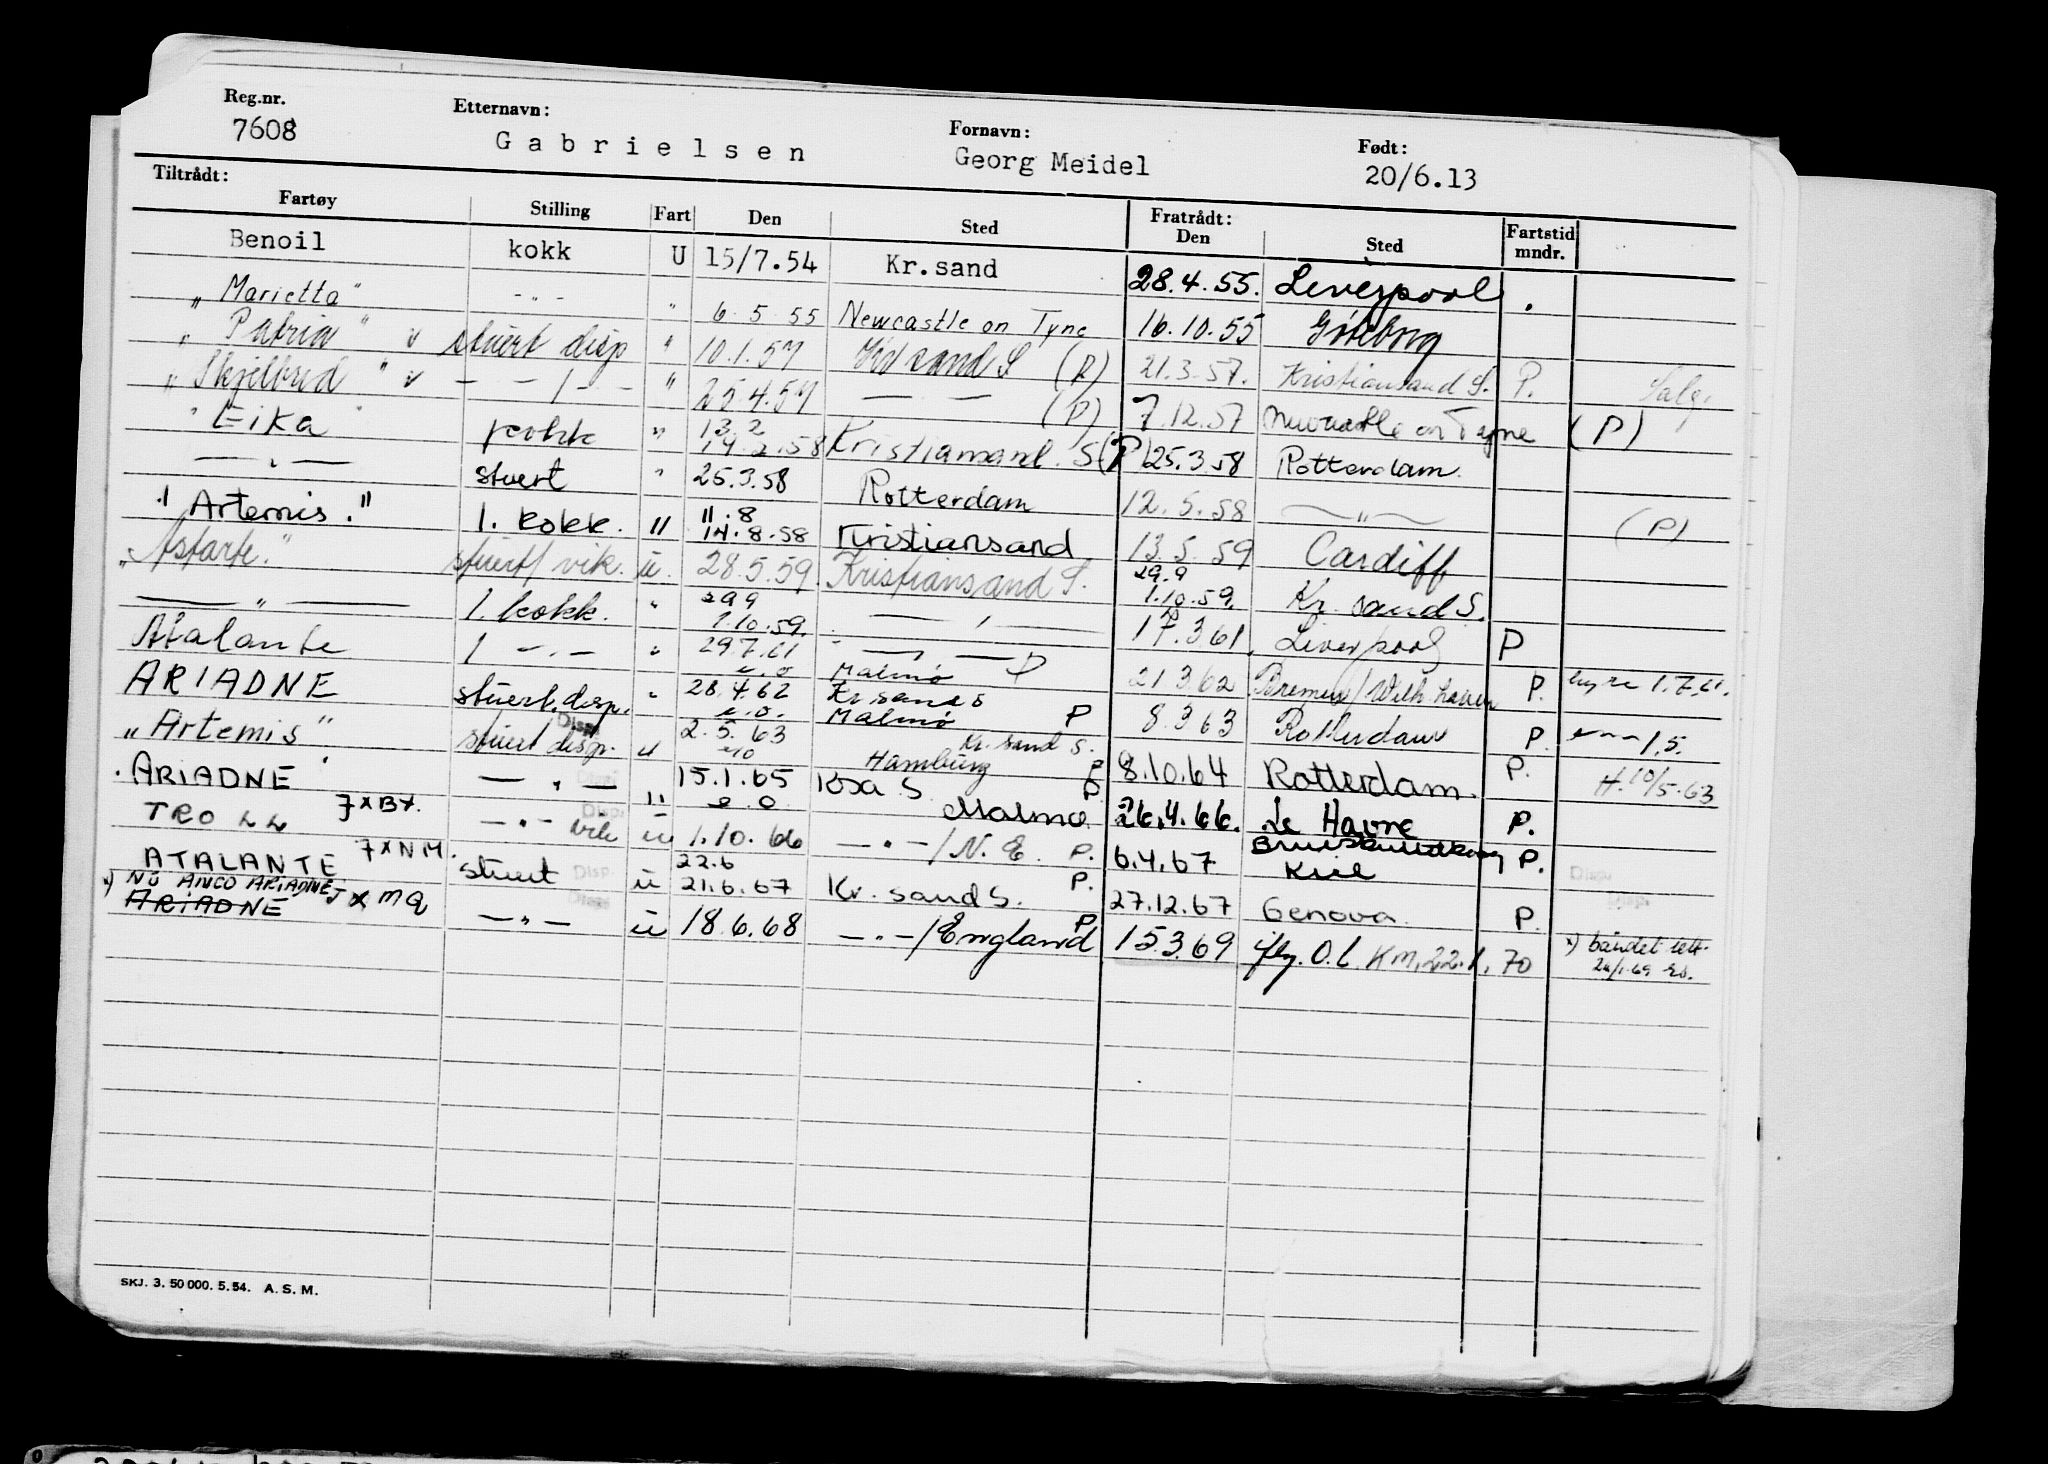 Reg.nr. Etternavn: Fornavn: Født:
7608 Gabrielsen Georg Meidel 20/6.13
Tiltrådt: Fratrådt:
Fartøy Stilling Fart Den Sted Den Sted Fartstid mndr.
Benoil kokk U 15/7.54 Kr.sand 28.4.55. Liverpool .
"Marietta" -"- " 6.5.55 Newcastle on Tyne 16.10.55 Göteborg
"Patria" v stuert disp " 10.1.57 Kr sand S (P) 21.3.57. Kristiansand S. P. Salg.
"Skjelbred" v - - " - - " 25.4.57 — — (P) 7.12.57 Newcastle on Tyne (P)
"Eika" kokk " 13.2 14.2.58 Kristiansand. S (P) 25.3.58 Rotterdam.
— " — stuert " 25.3.58 Rotterdam 12.5.58 — " — (P)
"Artemis." 1. kokk. " 11.8 14.8.58 Kristiansand 13.5.59 Cardiff
"Astarte." stuert/vik. ü. 28.5.59. Kristiansand S. 29.9 1.10.59. Kr. sand S.
— " — 1. kokk. " 29 9 1.10.59. — " — 17.3 61. Liverpool P
Atalante 1 - " - " 29.7.61 e.o — " — P Malmø 21 3 62 Bremen/Wilh.haven P. hyre 1.7.61.
ARIADNE stuert. disp. " 28.4.62 e.o. Kr sand S Malmø P 8.3 63 Rotterdam P. 1.5.
"Artemis" stuert disp. Disp. u 2.5.63 e/o Kr. sand S. Hamburg P 8.10.64 Rotterdam. P. H. 10/5-63
ARIADNE — " — Disp. " 15.1.65 e.o. Krsa S. P. Malmø 26.4.66. Le Havre P.
TROLL 7xBX. — " — vik Disp. ü 1.10.66 — " — / N.E. P. 6.4.67 Kiel P.
ATALANTE 7xNM. stuert Disp. ü 22.6 21.6.67 Kr. sand S. P. 27.12.67 Genova. P. Disp.
x) NÅ ANCO ARIADNE J x MQ
ARIADNE — " — Disp. ü 18.6.68 — " — / England P 15.3.69 flg. O.l. KM, 22.1.70 x)
SKJ. 3. 50 000. 5.54. A. S. M.